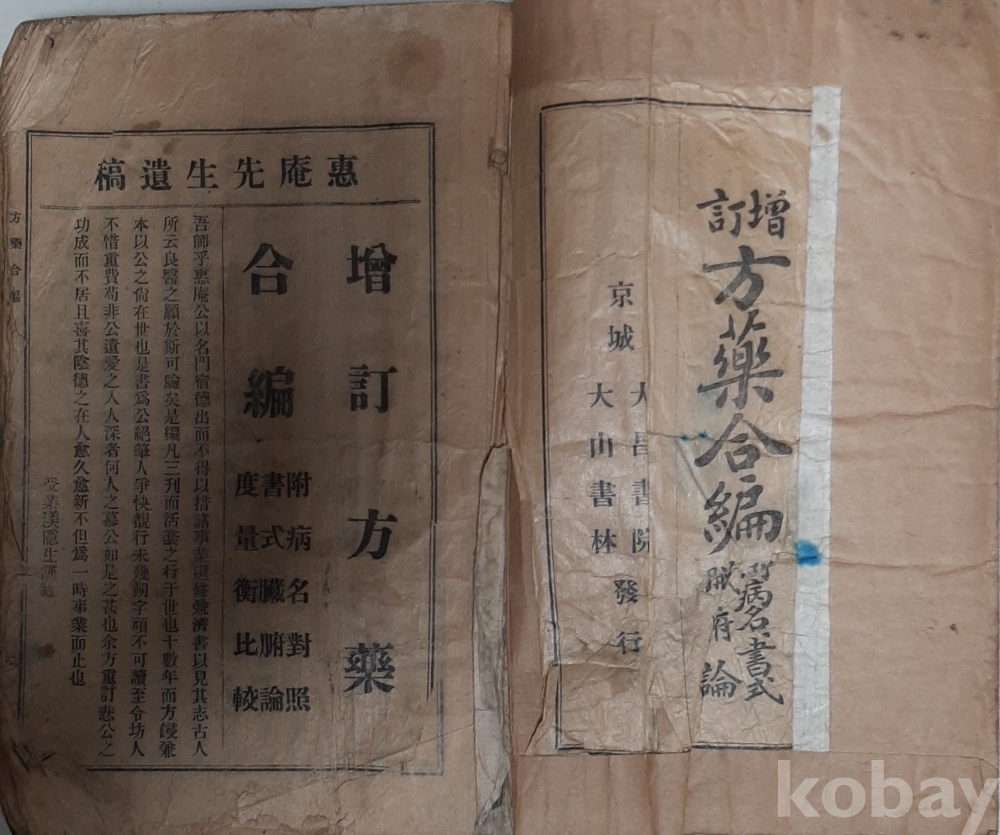 增訂
方藥合編
病名書式
臟府論
京城
大昌書院
大山書林
發行
惠庵先生遺稿
增訂方藥
合編
附病名對照
書式臟腑論
度量衡比較
吾師乎惠庵公以名門宿德出而不得以措諸事業退修兼濟書以見其志古人
所云良醫之願於斯可驗矣是編凡三刊而活套之行于世也十數年而方浸兼
本以公之尙在世也是書爲公絕筆人爭快覩行未幾刓字頑不可讀至令坊人
不惜重費苟非公遺愛之入人深者何人之慕公如是之甚也余方重訂悲公之
功成而不居且喜其陰德之在人愈久愈新不但爲一時事業而止也
受業渼隱生
方藥合編
kobay